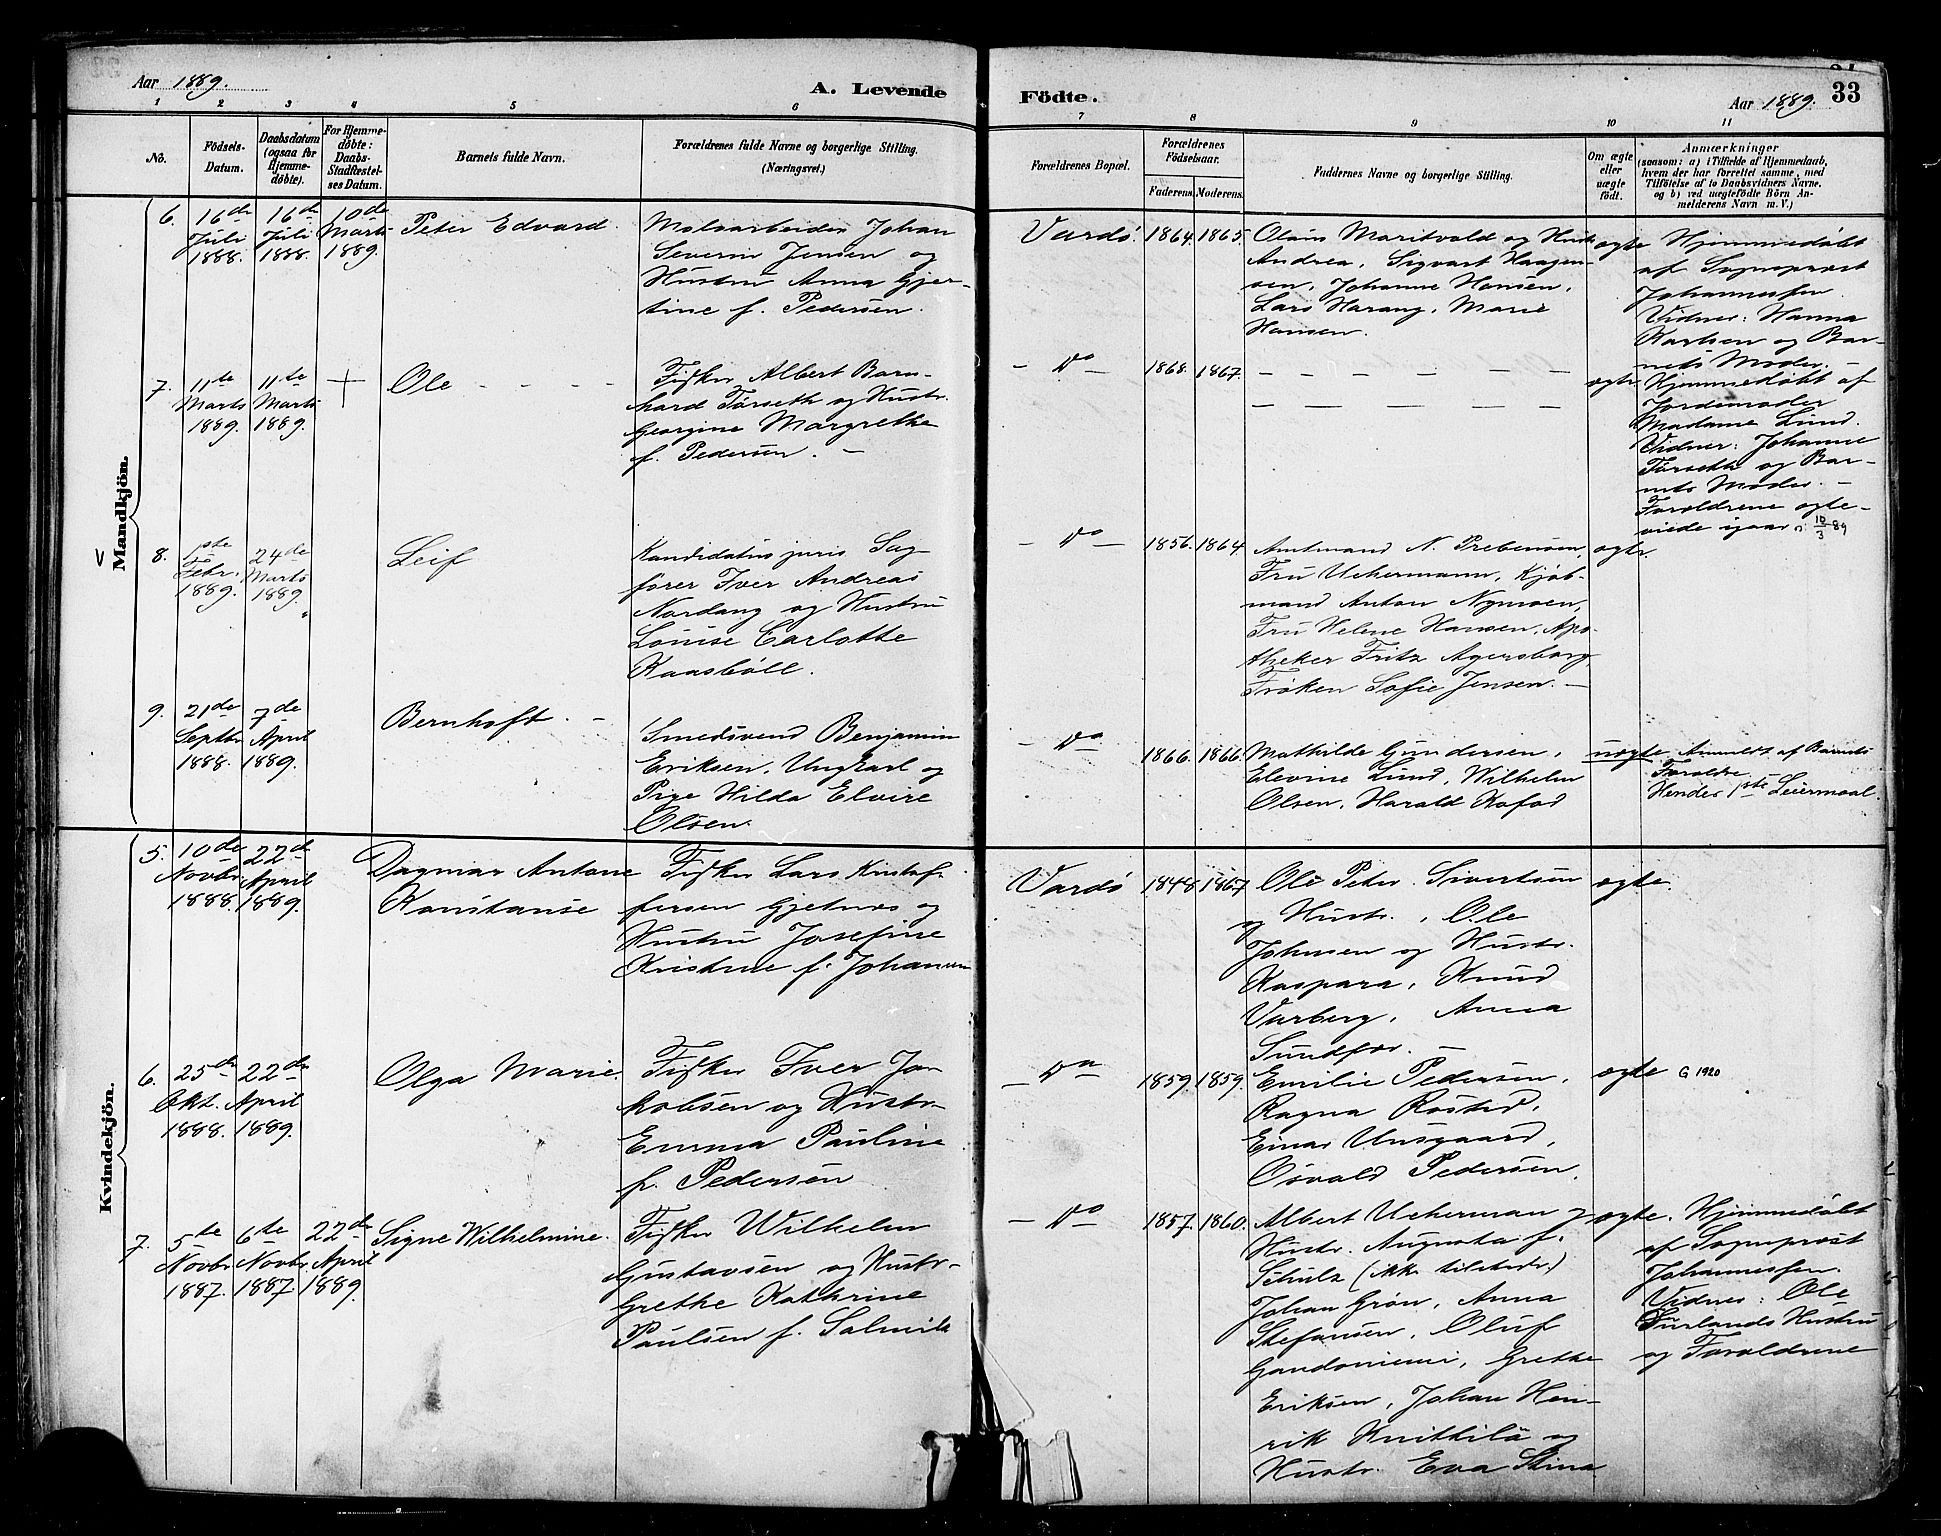 Aar 1889.
A. Levende
Födte.
Aar 1889. 33
1 2 3 4 5 6 7 8 9 10 11
No.
Födsels-
Datum.
Daabsdatum
(ogsaa for
Hjemme-
döbte).
For Hjemme-
döbte:
Daabs-
Stadfæstel-
ses Datum.
Barnets fulde Navn.
Forældrenes fulde Navne og borgerlige Stilling.
(Næringsvei.)
Forældrenes Bopæl.
Forældrenes
Födselsaar.
Faderens.
Moderens.
Faddernes Navne og borgerlige Stilling.
Om ægte
eller
uægte
födt.
Anmærkninger
(saasom: a) i Tilfælde af Hjemmedaab,
hvem der har forrettet samme, med
Tilföielse af to Daabsvidners Navne,
og b) ved uægtefödte Börn An-
melderens Navn m. V.)
Mandkjön.
6.
16de
Juli
1888.
16de
Juli
1888.
10de
Marts
1889.
Peter Edvard.
Johan
Severin Jensen og
Hustru Anna Gjer-
tine f. Pedersen.
Vardø.
1864.
1865.
Olaus Maritvold og Hustr.
Andrea, Sigvart Haagen-
sen, Johanne Hansen,
Lars Harang, Marie
Hansen.
ægte
Hjemmedøbt
af Sognepræst
Johannessen.
Vidner: Hanna
Karlsen og Bar-
nets Moder. –
7.
11te
Marts
1889.
11te
Marts
1889.
+
Ole
Fisker Albert Barn-
hard Tørseth og Hustr.
Georgine Margrethe
f. Pedersen. –
– Do –
1868.
1867.
ægte
Hjemmedøbt af
Jordemoder
Madame Lund.
Vidner: Johanne
Tørseth og Bar-
nets Moder. –
Forældrene ægte-
viede igaar 10/3 89
8.
1ste
Febr.
1889.
24de
Marts
1889.
Leif
Kandidatus juris Sag-
fører Iver Andreas
Nordang og Hustru
Louise Carlotte
Kaasbøll.
– Do –
1856.
1864.
Amtmand N. Prebensen,
Fru Uchermann, Kjøb-
mand Anton Nymoen,
Fru Helene Hansen, Apo-
theker Fritz Agersborg,
Frøken Sofie Jensen. –
ægte.
9.
21de
Septbr
1888.
7de
April
1889.
Bernhoft. –
Smedsvend Benjamin
Eriksen, Ungkarl og
Pige Hilda Elvire
Olsen.
– Do
1866.
1866.
Mathilde Gundersen,
Elevine Lund, Wilhelm
Olsen, Harald Kofod
uægte
Anmeldt af Barnets
Forældre
Hendes 1ste Leiermaal.
Kvindekjön.
5.
10de
Novbr
1888.
22de
April
1889.
Dagmar Antone
Konstanse
Fisker Lars Kristof-
fersen Gjetnes og
Hustru Josefine
Kristine f. Johansen
Vardø
1848.
1867
Ole Peter Sivertsen
og Hustr., Ole
Johnsen og Hustr.
Kaspara, Knud
Varberg, Anna
Sundfær. –
ægte.
6.
25de
Okt.
1888.
22de
April
1889.
Olga Marie.
Fisker Iver Ja-
kobsen og Hustr.
Emma Pauline
f. Pedersen
– Do –
1859.
1859.
Emilie Pedersen,
Ragna Røsted,
Einar Unsgaard,
Osvald Pedersen.
ægte
G 1920
7.
5te
Novbr
1887.
6te
Novbr
1887.
22de
April
1889.
Signe Wilhelmine.
Fisker Wilhelm
Gustavsen og Hustr.
Grethe Kathrine
Paulsen f. Salmila
– Do –
1857.
1860.
Albert Ucherman og
Hustr. Augusta f.
Schulz (ikke tilstede.)
Johan Grøn, Anna
Stefansen, Oluf
Gandoniemi, Grethe
Eriksen, Johan Hen-
rik Knittilä og
Hustr. Eva Stina
ægte.
Hjemmedøbt
af Sognepræst
Johannessen.
Vidner: Ole
Furlands Hustru
og Forældrene